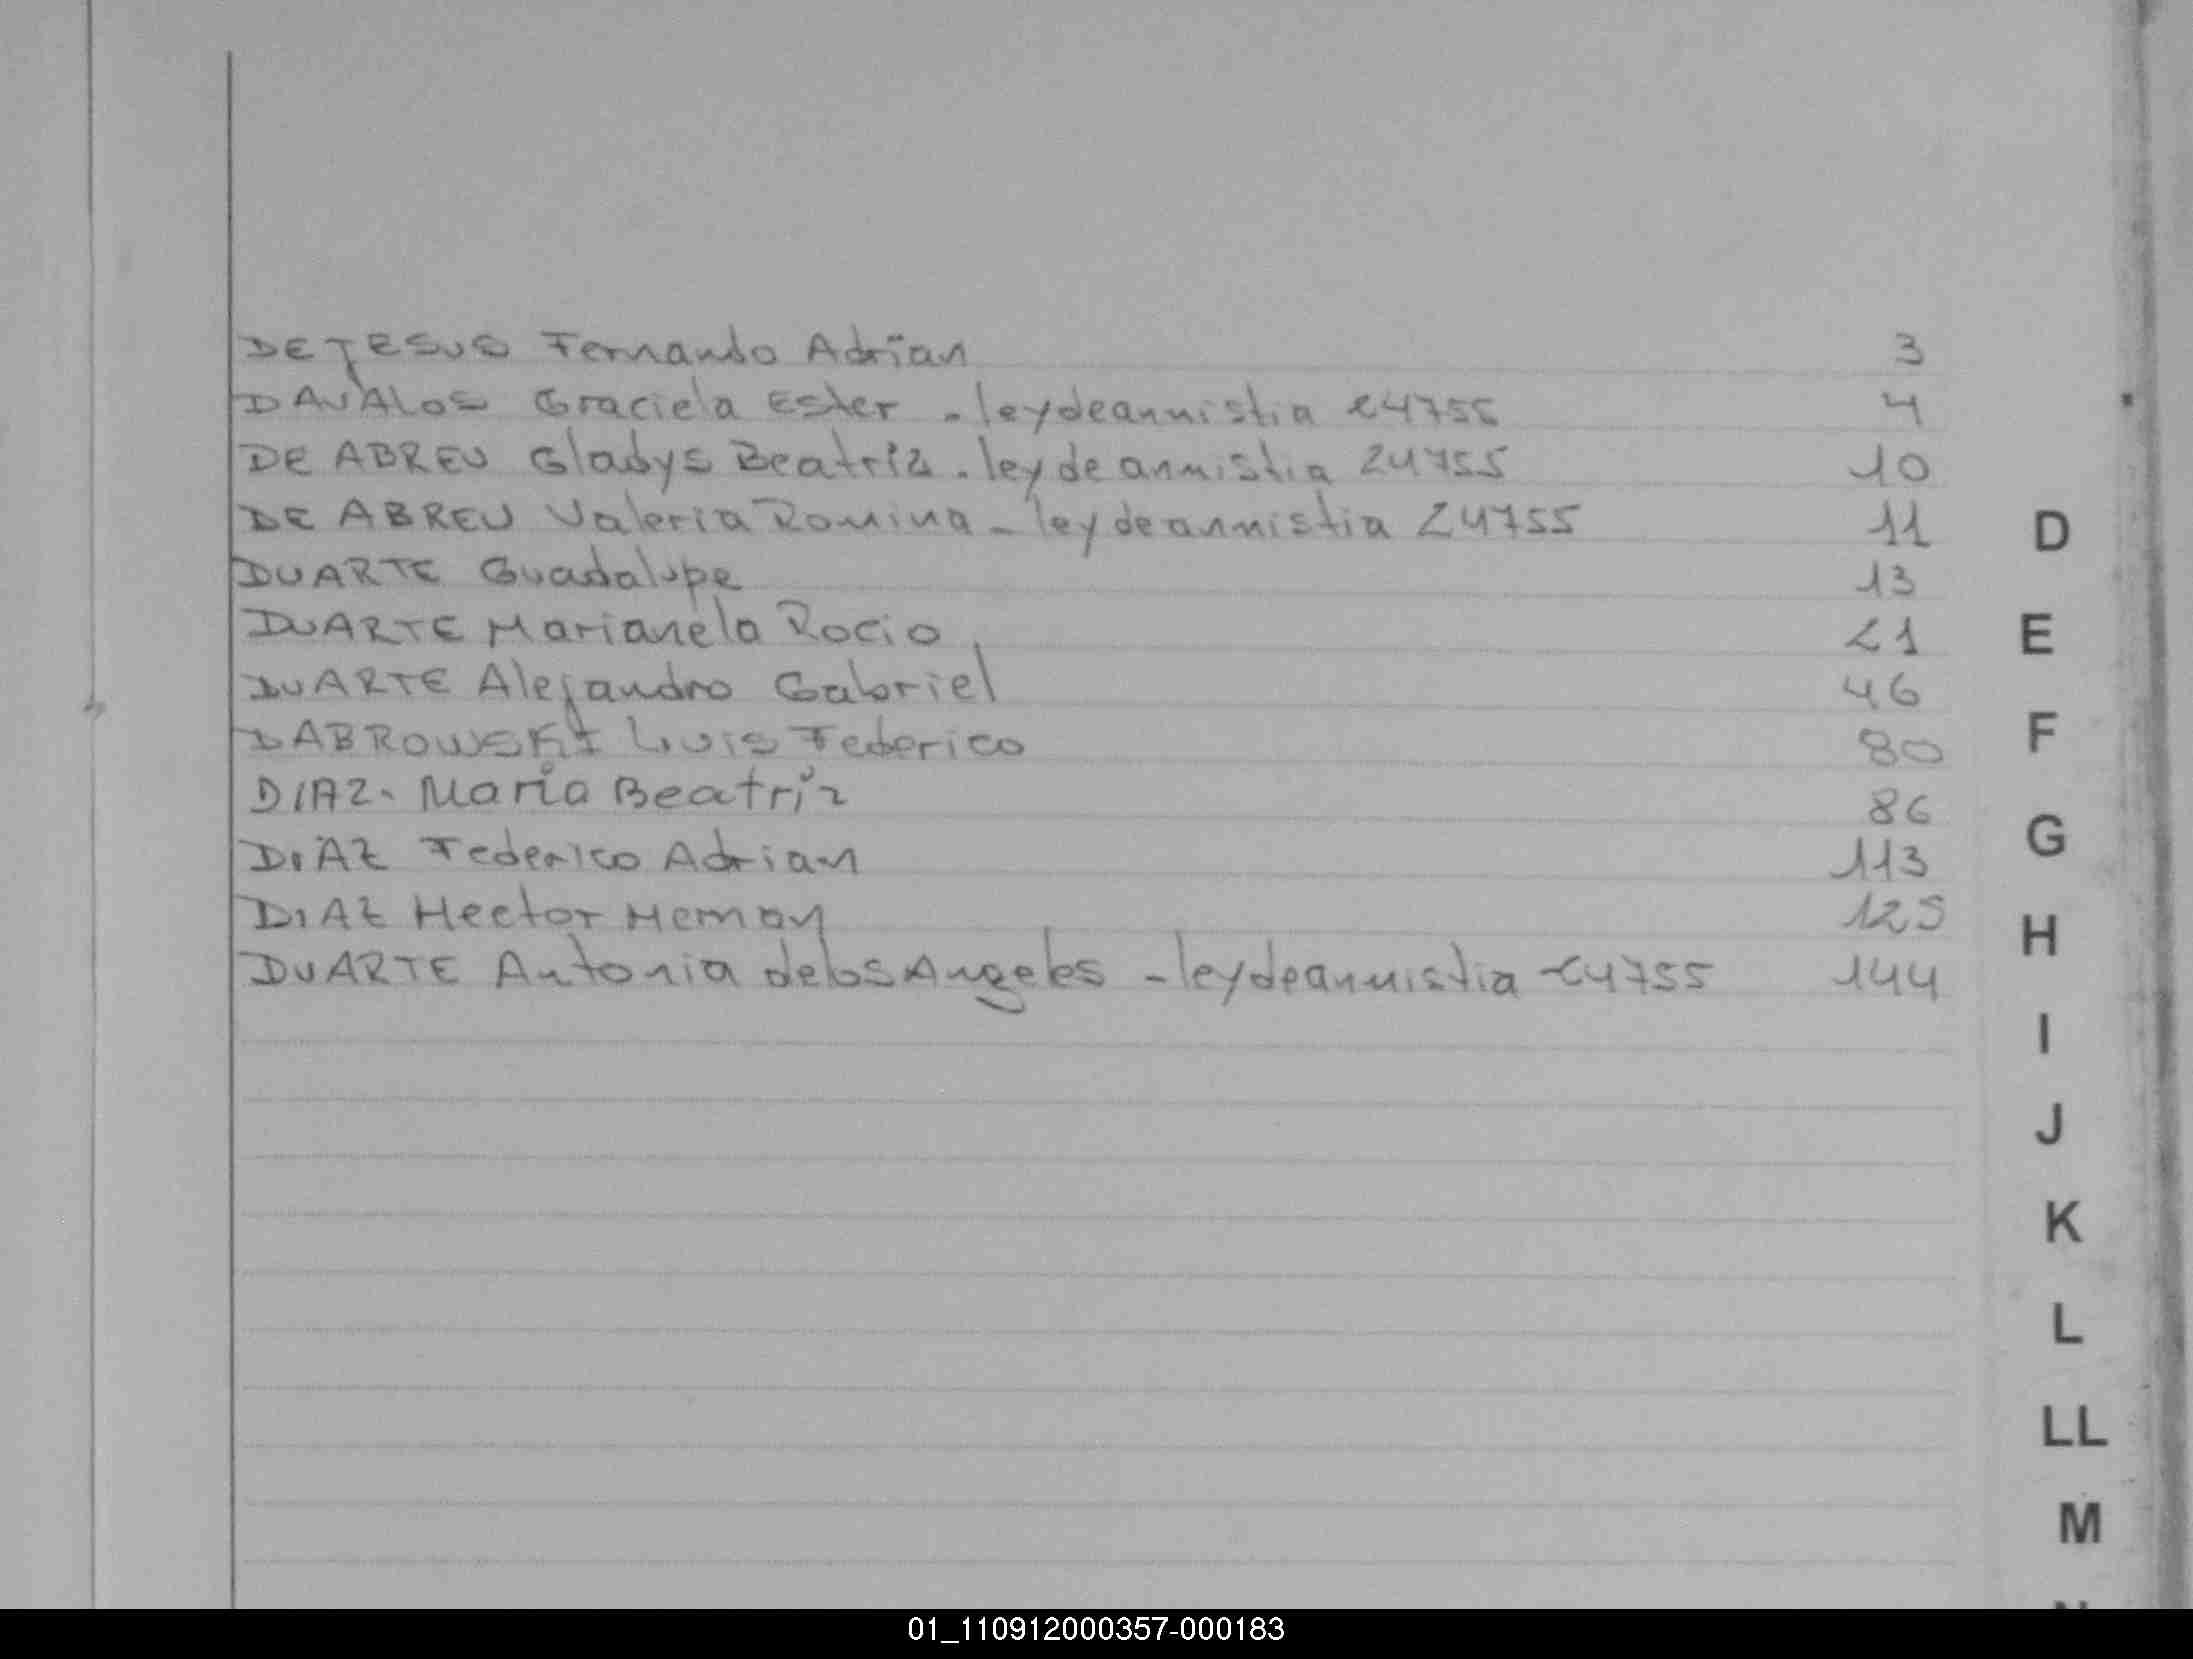 DE JESUS Fernando Adrian 3
DAVALOS Graciela Ester - ley de annistia 24755 4
DE ABREU Gladys Beatriz - ley de anmistia 24755 10
DE ABREU Valeria Romina - ley de annistia 24755 11
DUARTE Guadalupe 13
DUARTE Marianela Rocio 21
DUARTE Alejandro Gabriel 46
DABROWSKI Luis Federico 80
DIAZ- Maria Beatríz 86
DIAZ Federico Adrian 113
DIAZ Hector Hernan 125
DUARTE Antonia de los Angeles - ley de anmistia 24755 144
D
E
F
G
H
I
J
K
L
LL
M
01_110912000357-000183